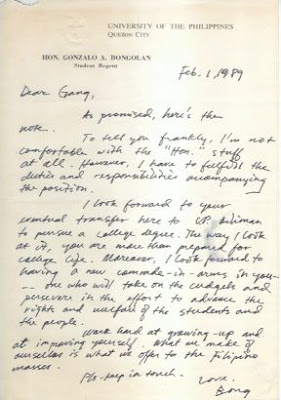 UNIVERSITY OF THE PHILIPPINES
QUEZON CITY
HON. GONZALO A. BONGOLAN
Student Regent
Feb. 1, 1989
Dear Gang,
As promised, here's the
note.
To tell you frankly, I'm not
comfortable with the "Hon." stuff
at all. However, I have to fulfill the
duties and responsibilities accompanying
the position.
I look forward to your
eventual transfer here to UP Diliman
to pursue a college degree. The way I look
at it, you are more than prepared for
college life. Moreover, I look forward to
having a new comrade-in-arms in you
-- one who will take on the cudgels and
persevere in the effort to advance the
rights and welfare of the students and
the people.
Work hard at growing-up and
at improving yourself. What we make of
ourselves is what we offer to the Filipino
masses.
Pls. keep in touch.
Love,
Bong